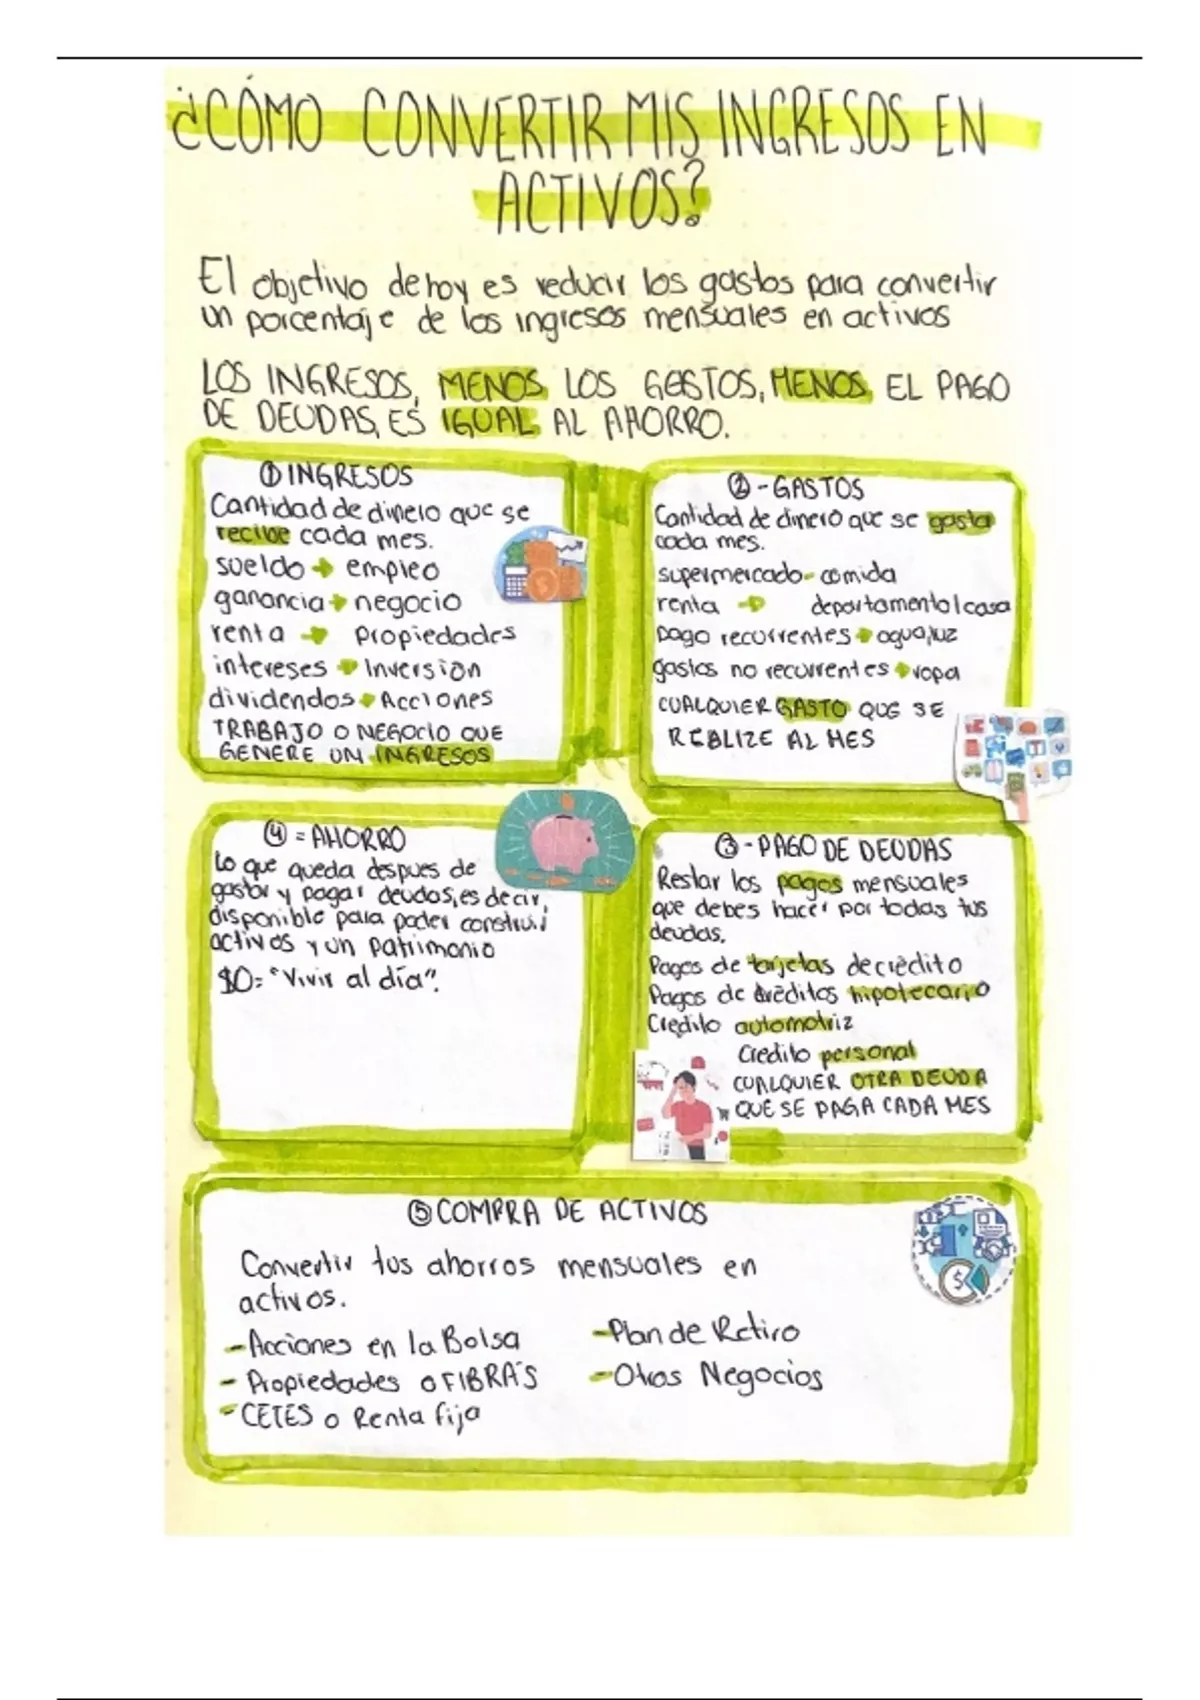 ¿CÓMO CONVERTIR MIS INGRESOS EN
ACTIVOS?
El objetivo de hoy es reducir los gastos para convertir
un porcentaje de los ingresos mensuales en activos
LOS INGRESOS, MENOS LOS GASTOS, MENOS EL PAGO
DE DEUDAS, ES IGUAL AL AHORRO.
① INGRESOS
Cantidad de dinero que se
recibe cada mes.
sueldo → empleo
ganancia → negocio
renta → Propiedades
intereses → Inversion
dividendos → Acciones
TRABAJO O NEGOCIO QUE
GENERE UN INGRESOS
② - GASTOS
Cantidad de dinero que se gasta
cada mes.
supermercado - comida
renta → departamento/casa
pago recurrentes → agua, luz
gastos no recurrentes → ropa
CUALQUIER GASTO QUE SE
REALIZE AL MES
④ = AHORRO
Lo que queda despues de
gastar y pagar deudas, es decir,
disponible para poder construir
activos y un patrimonio
$0= "Vivir al día".
③ - PAGO DE DEUDAS
Restar los pagos mensuales
que debes hacer por todas tus
deudas.
Pagos de tarjetas de crédito
Pagos de créditos hipotecario
Credito automotriz
Credito personal
CUALQUIER OTRA DEUDA
QUE SE PAGA CADA MES
⑤ COMPRA DE ACTIVOS
Convertir tus ahorros mensuales en
activos.
- Acciones en la Bolsa
- Propiedades o FIBRA'S
- CETES o Renta fija
- Plan de Retiro
- Otros Negocios